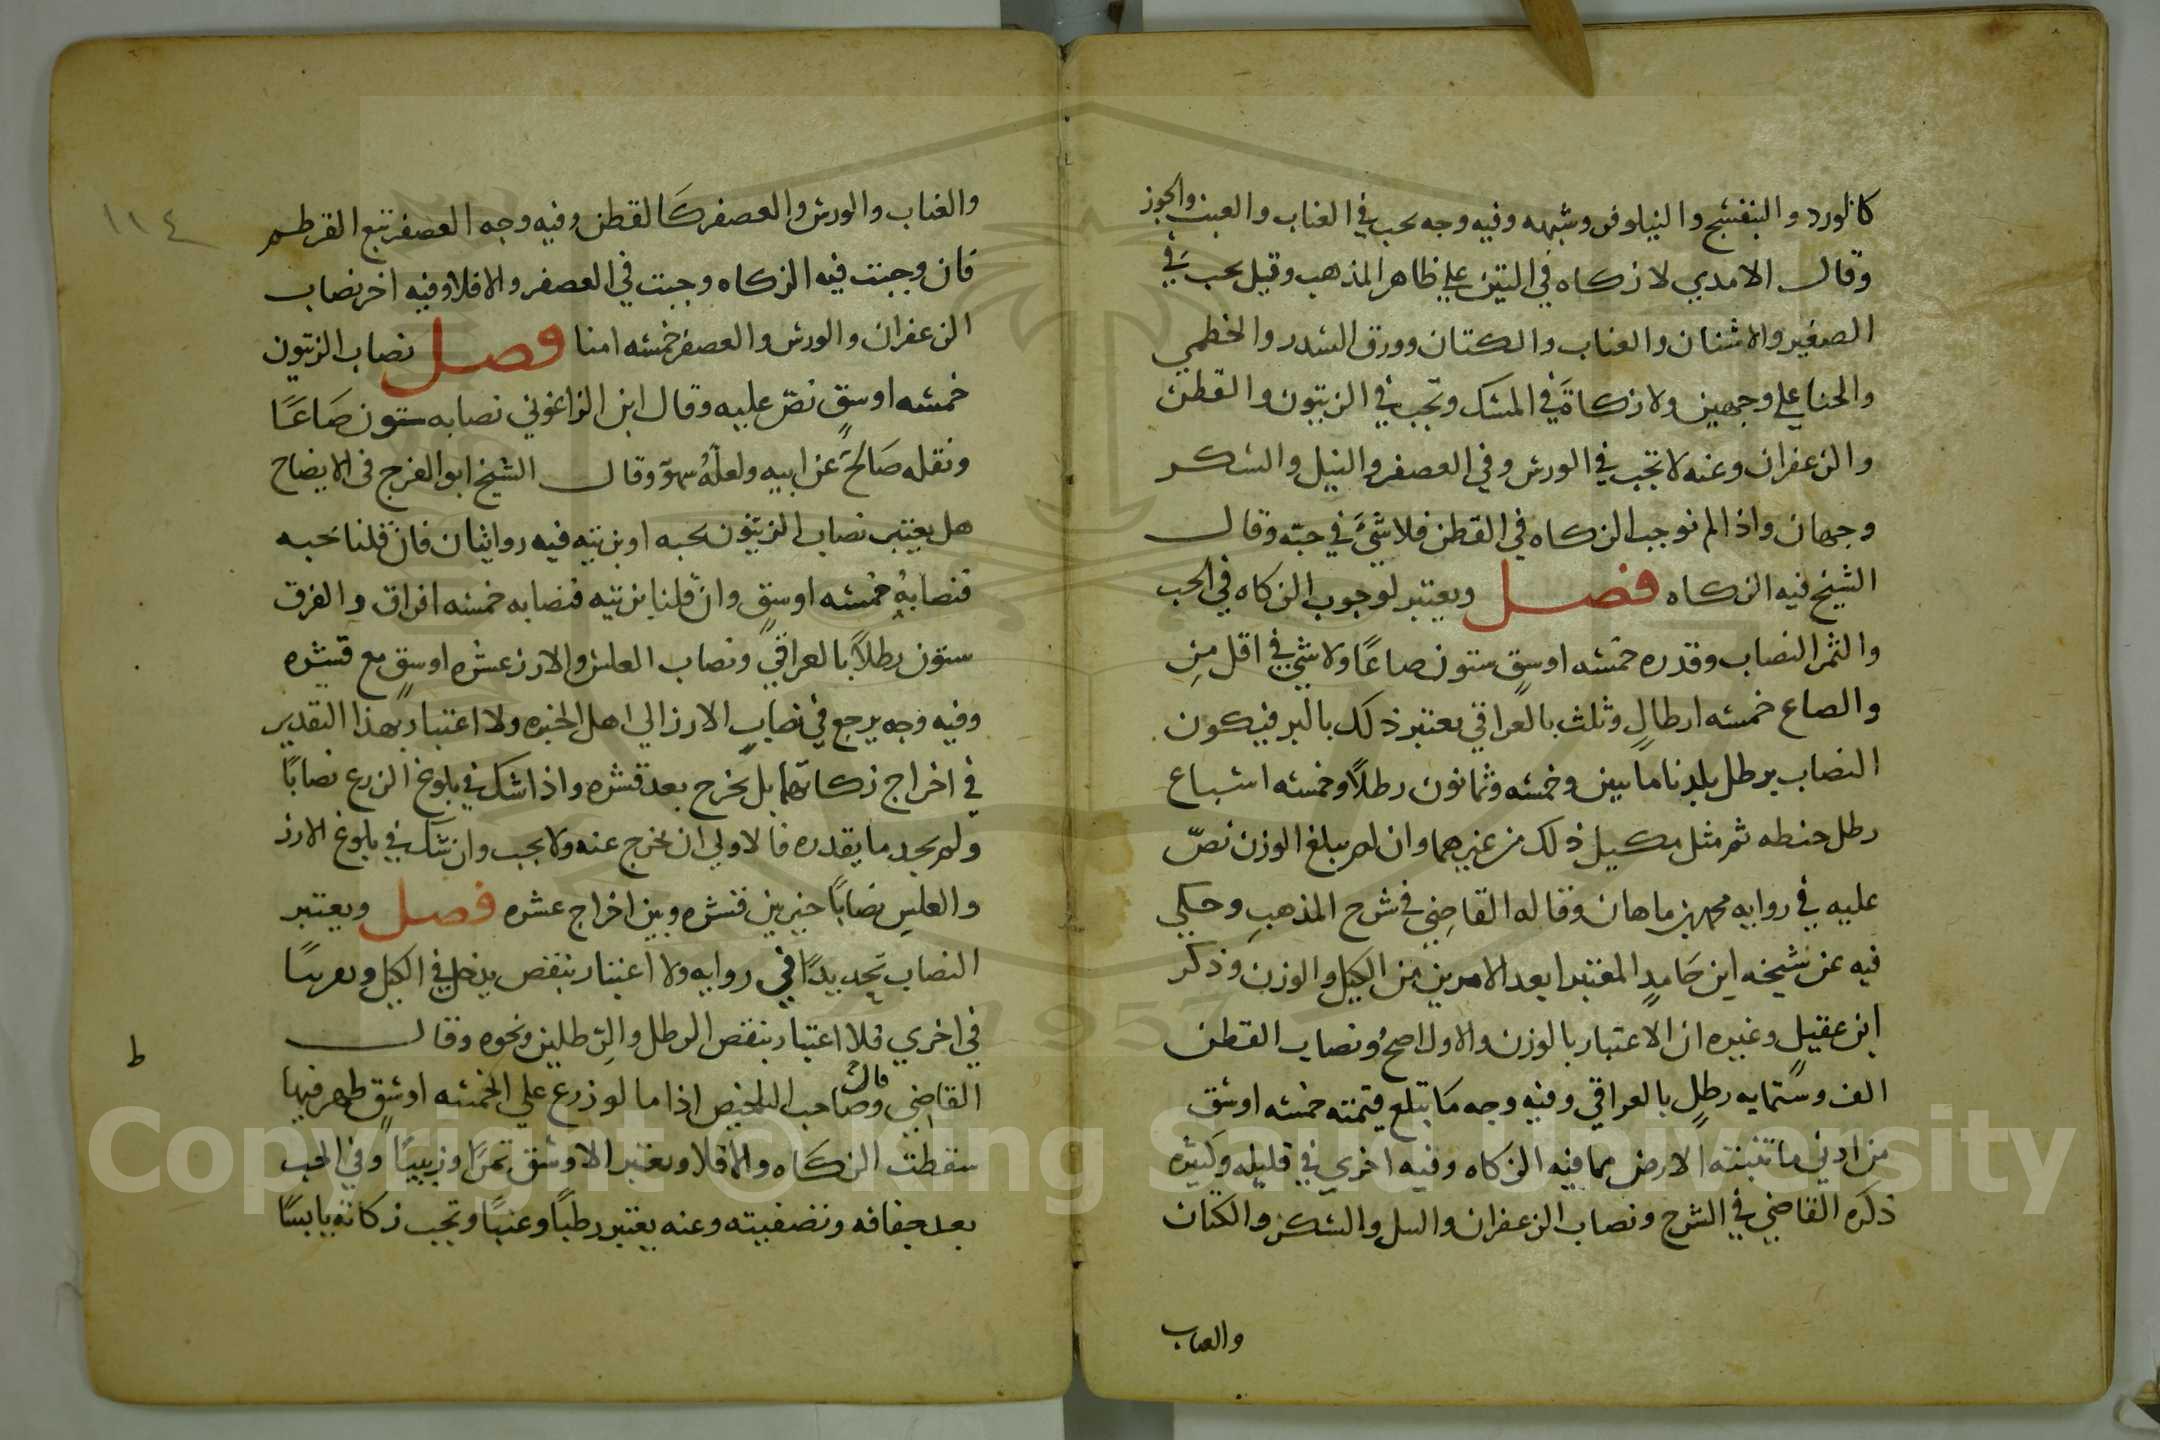 كالورد والبنفسج والنيلوفر وشبهه وفيه وجه يجب في العناب والعنب والجوز
وقال الامدي لا زكاه في التين علي ظاهر المذهب وقيل يجب في
الصغير والاشنان والعناب والكتان وورق السدر والخطمي
والحنا علي وجهين ولا زكاة في المسك وتجب في الزيتون والقطن
والزعفران وعنه لا تجب في الورس وفي العصفر والنيل والسكر
وجهان واذا لم نوجب الزكاه في القطن فلا شئ في حبه وقال
الشيخ فيه الزكاه فصل ويعتبر لوجوب الزكاه في الحب
والثمر النصاب وقدره خمسه اوسق ستون صاعا ولا شي في اقل من
والصاع خمسه ارطال وثلث بالعراقي يعتبر ذلك بالبر فيكون
النصاب برطل بلدنا مايتين وخمسه وثمانون رطلا وخمسه اسباع
رطل حنطه ثم مثل مكيل ذلك من غيرهما وان لم يبلغ الوزن نص
عليه في روايه محمد بن ماهان وقاله القاضي في شرح المذهب وحكي
فيه عن شيخه ابن حامد المعتبر ابعد الامرين من الكيل والوزن وذكر
ابن عقيل وغيره ان الاعتبار بالوزن والاول اصح ونصاب القطن
الف وستمايه رطل بالعراقي وفيه وجه ما تبلغ قيمته خمسه اوسق
من ادني ما تنبته الارض مما فيه الزكاه وفيه اخري في قليله وكثيره
ذكره القاضي في الشرح ونصاب الزعفران والنيل والسكر والكتان
والعناب
١١٤
والعناب والورس والعصفر كالقطن وفيه وجه العصفر تبع القرطم
فان وجبت فيه الزكاه وجبت في العصفر والا فلا وفيه اخر نصاب
الزعفران والورس والعصفر خمسه امنا فصل نصاب الزيتون
خمسه اوسق نص عليه وقال ابن الزاغوني نصابه ستون صاعا
ونقله صالح عن ابيه ولعله سهو وقال الشيخ ابو الفرج في الايضاح
هل يعتبر نصاب الزيتون بحبه او بزيته فيه روايتان فان قلنا بحبه
فنصابه خمسه اوسق وان قلنا بزيته فنصابه خمسه افراق والفرق
ستون رطلا بالعراقي ونصاب العلس والارز عشره اوسق مع قشره
وفيه وجه يرجع في نصاب الارز الي اهل الخبره ولا اعتبار بهذا التقدير
في اخراج زكاتهما بل يخرج بعد قشره واذا شك في بلوغ الزرع نصابا
ولم يجد ما يقدره فالاولي ان يخرج عنه ولا يجب وان شك في بلوغ الارز
والعلس نصابا خير بين قشره وبين اخراج عشره فصل ويعتبر
النصاب تحديدا في روايه ولا اعتبار بنقص يدخل في الكيل وتقريبا
في اخري فلا اعتبار بنقص الرطل والرطلين ونحوه وقال
القاضي وصاحب التلخيص اذا ما لو زرع علي الخمسه اوسق ظهر فيها
قال
ط
سقطت الزكاه والا فلا ويعتبر الاوسق تمرا وزبيبا وفي الحب
بعد جفافه وتصفيته وعنه يعتبر رطبا وعنبا وتجب زكاته يابسا
Copyright © King Saud University
1957